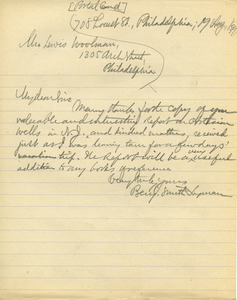 [Post Card]
708 Locust St., Philadelphia, 19 Aug.,
Mr. Lewis Woolman,
1305 Arch Street,
Philadelphia
My dear Sir,
Many thanks for the copy of your
valuable and interesting Report on Artesian
wells in N.J. and kindred matters, received
just as I was leaving town for a few days'
vacation trip. The Report will be a very useful
addition to my books of reference.
Very truly yours
Benj. Smith Lyman